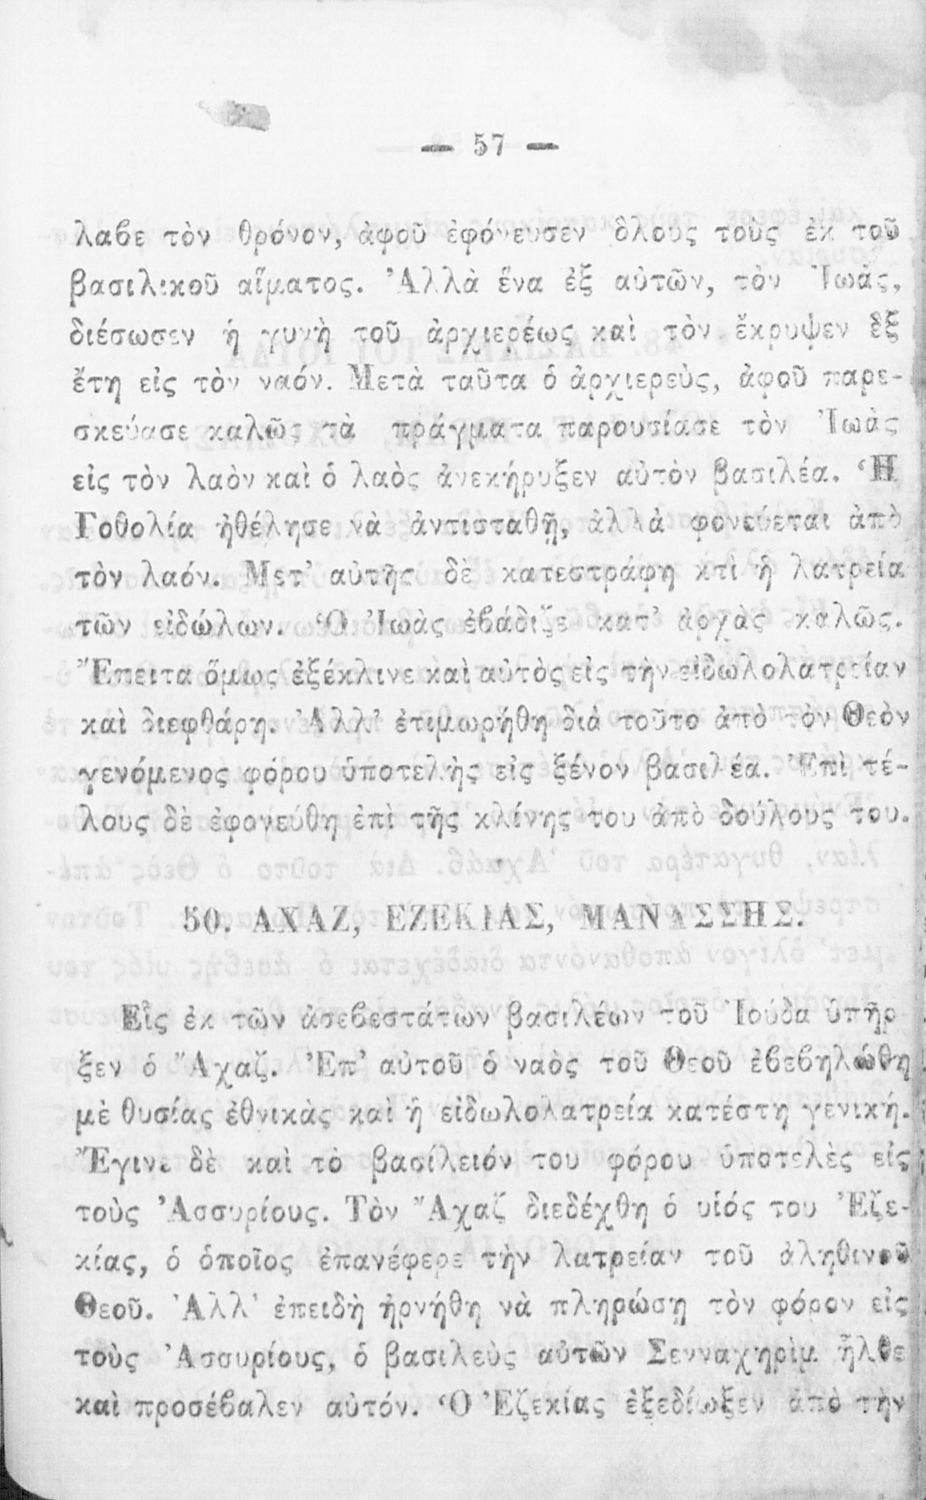 — 57 —
λαβε τὸν θρόνον, ἀφοῦ ἐφόνευσεν ὅλους τοὺς ἐκ τοῦ
βασιλικοῦ αἵματος. Ἀλλὰ ἕνα ἐξ αὐτῶν, τὸν Ἰωὰς,
διέσωσεν ἡ γυνὴ τοῦ ἀρχιερέως καὶ τὸν ἔκρυψεν ἓξ
ἔτη εἰς τὸν ναόν. Μετὰ ταῦτα ὁ ἀρχιερεὺς, ἀφοῦ παρε-
σκεύασε καλῶς τὰ πράγματα παρουσίασε τὸν Ἰωὰς
εἰς τὸν λαὸν καὶ ὁ λαὸς ἀνεκήρυξεν αὐτὸν βασιλέα. Ἡ
Γοθολία ἠθέλησε νὰ ἀντισταθῇ, ἀλλὰ φονεύεται ἀπὸ
τὸν λαόν. Μετ’ αὐτῆς δὲ κατεστράφη κτὶ ἡ λατρεία
τῶν εἰδώλων. Ὁ Ἰωὰς ἐβάδιζε κατ’ ἀρχὰς καλῶς.
Ἔπειτα ὅμως ἐξέκλινε καὶ αὐτὸς εἰς τὴν εἰδωλολατρείαν
καὶ διεφθάρη. Ἀλλ’ ἐτιμωρήθη διὰ τοῦτο ἀπὸ τὸν Θεὸν
γενόμενος φόρου ὑποτελὴς εἰς ξένον βασιλέα. Ἐπὶ τέ-
λους δὲ ἐφονεύθη ἐπὶ τῆς κλίνης του ἀπὸ δούλους του.
50. ΑΧΑΖ, ΕΖΕΚΙΑΣ, ΜΑΝΑΣΣΗΣ.
Εἷς ἐκ τῶν ἀσεβεστάτων βασιλέων τοῦ Ἰούδα ὑπῆρ
ξεν ὁ Ἄχαζ. Ἐπ’ αὐτοῦ ὁ ναὸς τοῦ Θεοῦ ἐβεβηλώθη
μὲ θυσίας ἐθνικὰς καὶ ἡ εἰδωλολατρεία κατέστη γενική.
Ἔγινε δὲ καὶ τὸ βασίλειόν του φόρου ὑποτελὲς εἰς
τοὺς Ἀσσυρίους. Τὸν Ἄχαζ διεδέχθη ὁ υἱός του Ἐζε-
κίας, ὁ ὁποῖος ἐπανέφερε τὴν λατρείαν τοῦ ἀληθινοῦ
Θεοῦ. Ἀλλ’ ἐπειδὴ ἠρνήθη νὰ πληρώσῃ τὸν φόρον εἰς
τοὺς Ἀσσυρίους, ὁ βασιλεὺς αὐτῶν Σενναχηρὶμ ἦλθε
καὶ προσέβαλεν αὐτόν. Ὁ Ἐζεκίας ἐξεδίωξεν ἀπὸ τὴν